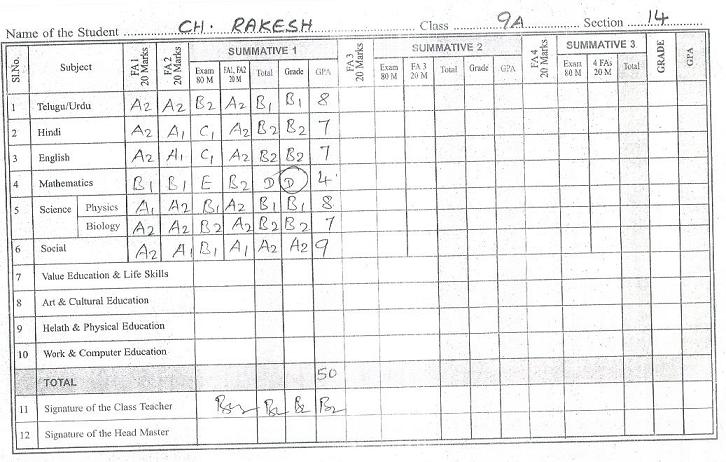 Name of the Student CH. RAKESH Class 9A Section 14
Sl.No. Subject FA 1 20 Marks FA 2 20 Marks SUMMATIVE 1 FA 3 20 Marks SUMMATIVE 2 FA 4 20 Marks SUMMATIVE 3 GRADE GPA
Exam 80 M FA1, FA2 20 M Total Grade GPA Exam 80 M FA 3 20 M Total Grade GPA Exam 80 M 4 FAs 20 M Total
1 Telugu/Urdu A2 A2 B2 A2 B1 B1 8
2 Hindi A2 A1 C1 A2 B2 B2 7
3 English A2 A1 C1 A2 B2 B2 7
4 Mathematics B1 B1 E B2 D D 4
5 Science Physics A1 A2 B1 A2 B1 B1 8
Biology A2 A2 B2 A2 B2 B2 7
6 Social A2 A1 B1 A1 A2 A2 9
7 Value Education & Life Skills
8 Art & Cultural Education
9 Helath & Physical Education
10 Work & Computer Education
TOTAL 50
11 Signature of the Class Teacher
12 Signature of the Head Master